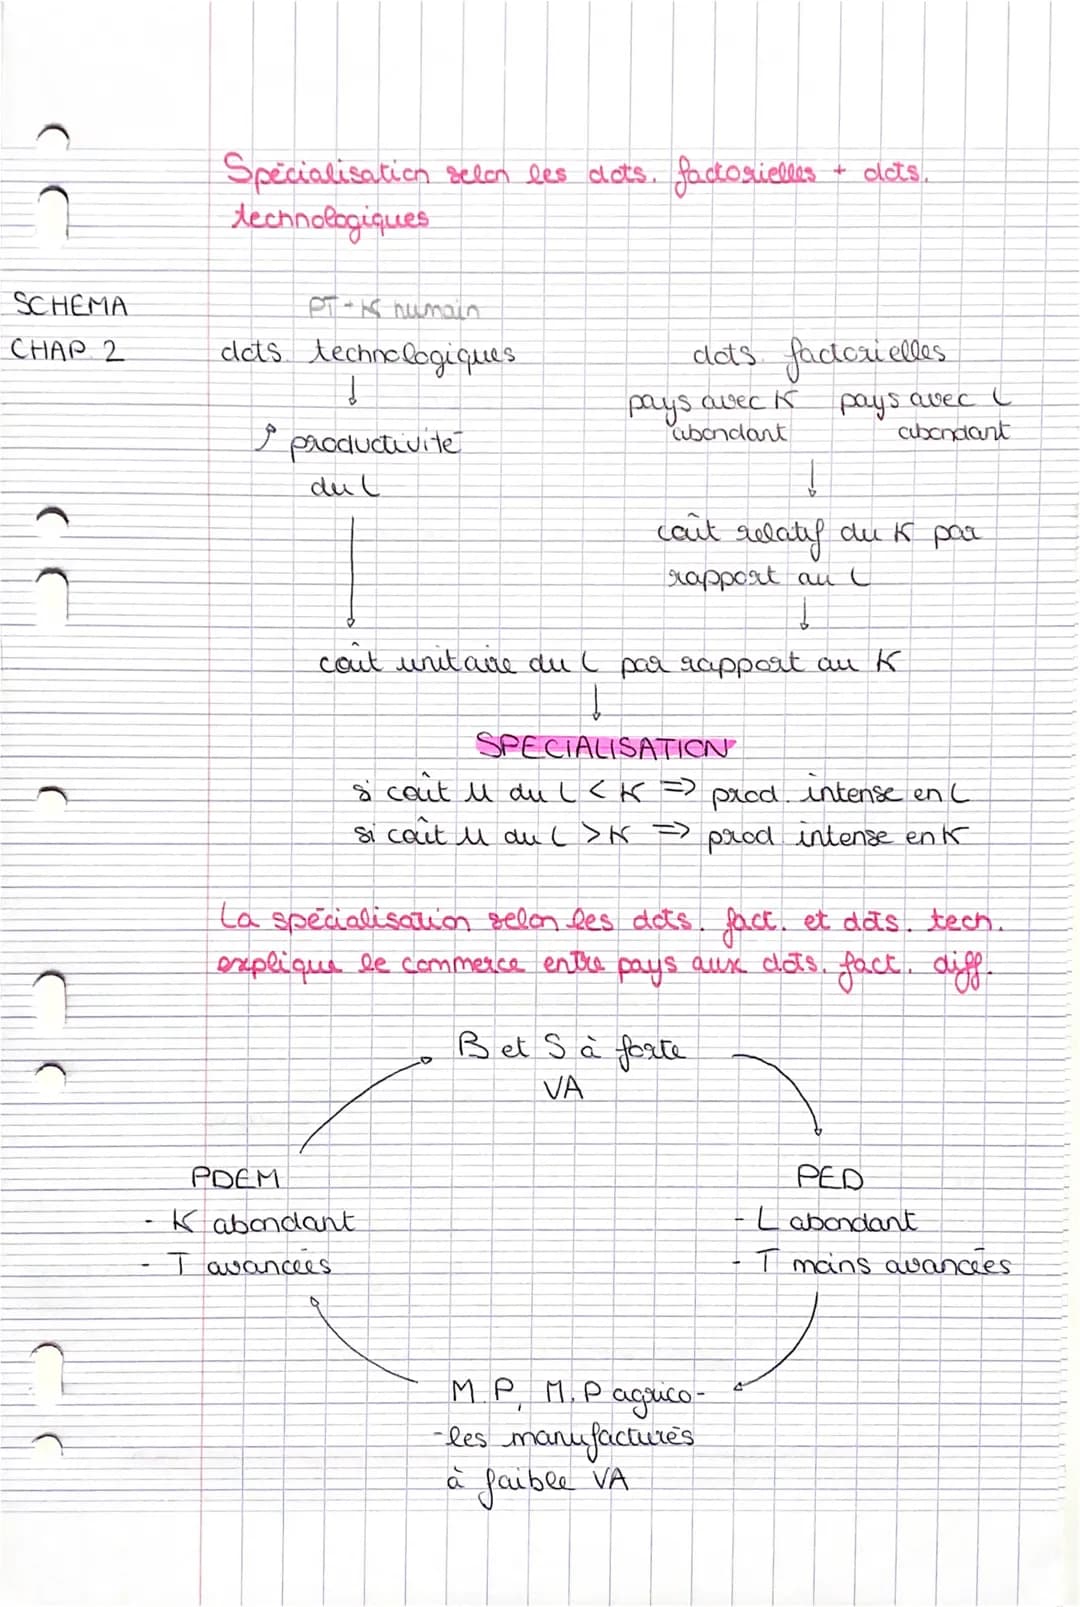 Spécialisation selon les dots. factorielles + dots.
technologiques
SCHEMA
CHAP 2
PT - K humain
dots. technologiques
↓
↗ productivité
du L
dots. factorielles
pays avec K abondant
pays avec L abondant
↓
coût relatif du K par
rapport au L
↓
coût unitaire du L par rapport au K
↓
SPECIALISATION
si coût u du L < K => prod. intense en L
si coût u du L > K => prod intense en K
La spécialisation selon les dots. fact. et dots. tech.
explique le commerce entre pays aux dots. fact. diff.
B et S à forte
VA
PDEM
- K abondant
- T avancées
PED
- L abondant
- T moins avancées
M.P, M.P agrico-
-les manufacturés
à faible VA